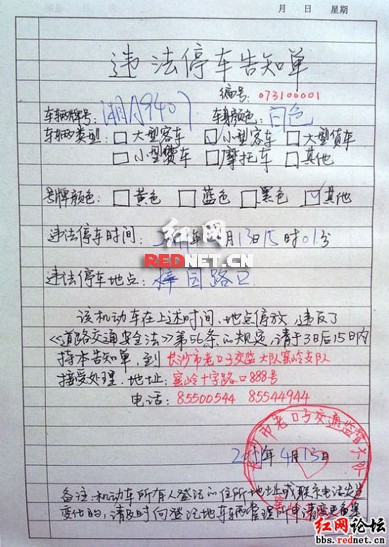 月 日 星期
违法停车告知单
编号: 073100001
车辆牌号: 车身颜色: 白色
车辆类型: 大型客车 小型客车 大型货车
小型货车 摩托车 其他
号牌颜色: 黄色 蓝色 黑色 其他
红网
REDNET.CN
违法停车时间: 月13日15时01分
违法停车地点: 梓园路口
该机动车在上述时间、地点停放,违反了
《道路交通安全法》第56条的规定,请于3日后15日内
持本告知单,到长沙市老口子交监大队窑岭支队
接受处理。地址:窑岭十字路口888号
电话: 85500544 85544944
市老口子交通监督大队
4月13日
备注:机动车所有人登记的住所地址或联系电话发生
变化的,请及时向登记地车辆管理所申请变更备案
红网论坛
bbs.rednet.cn